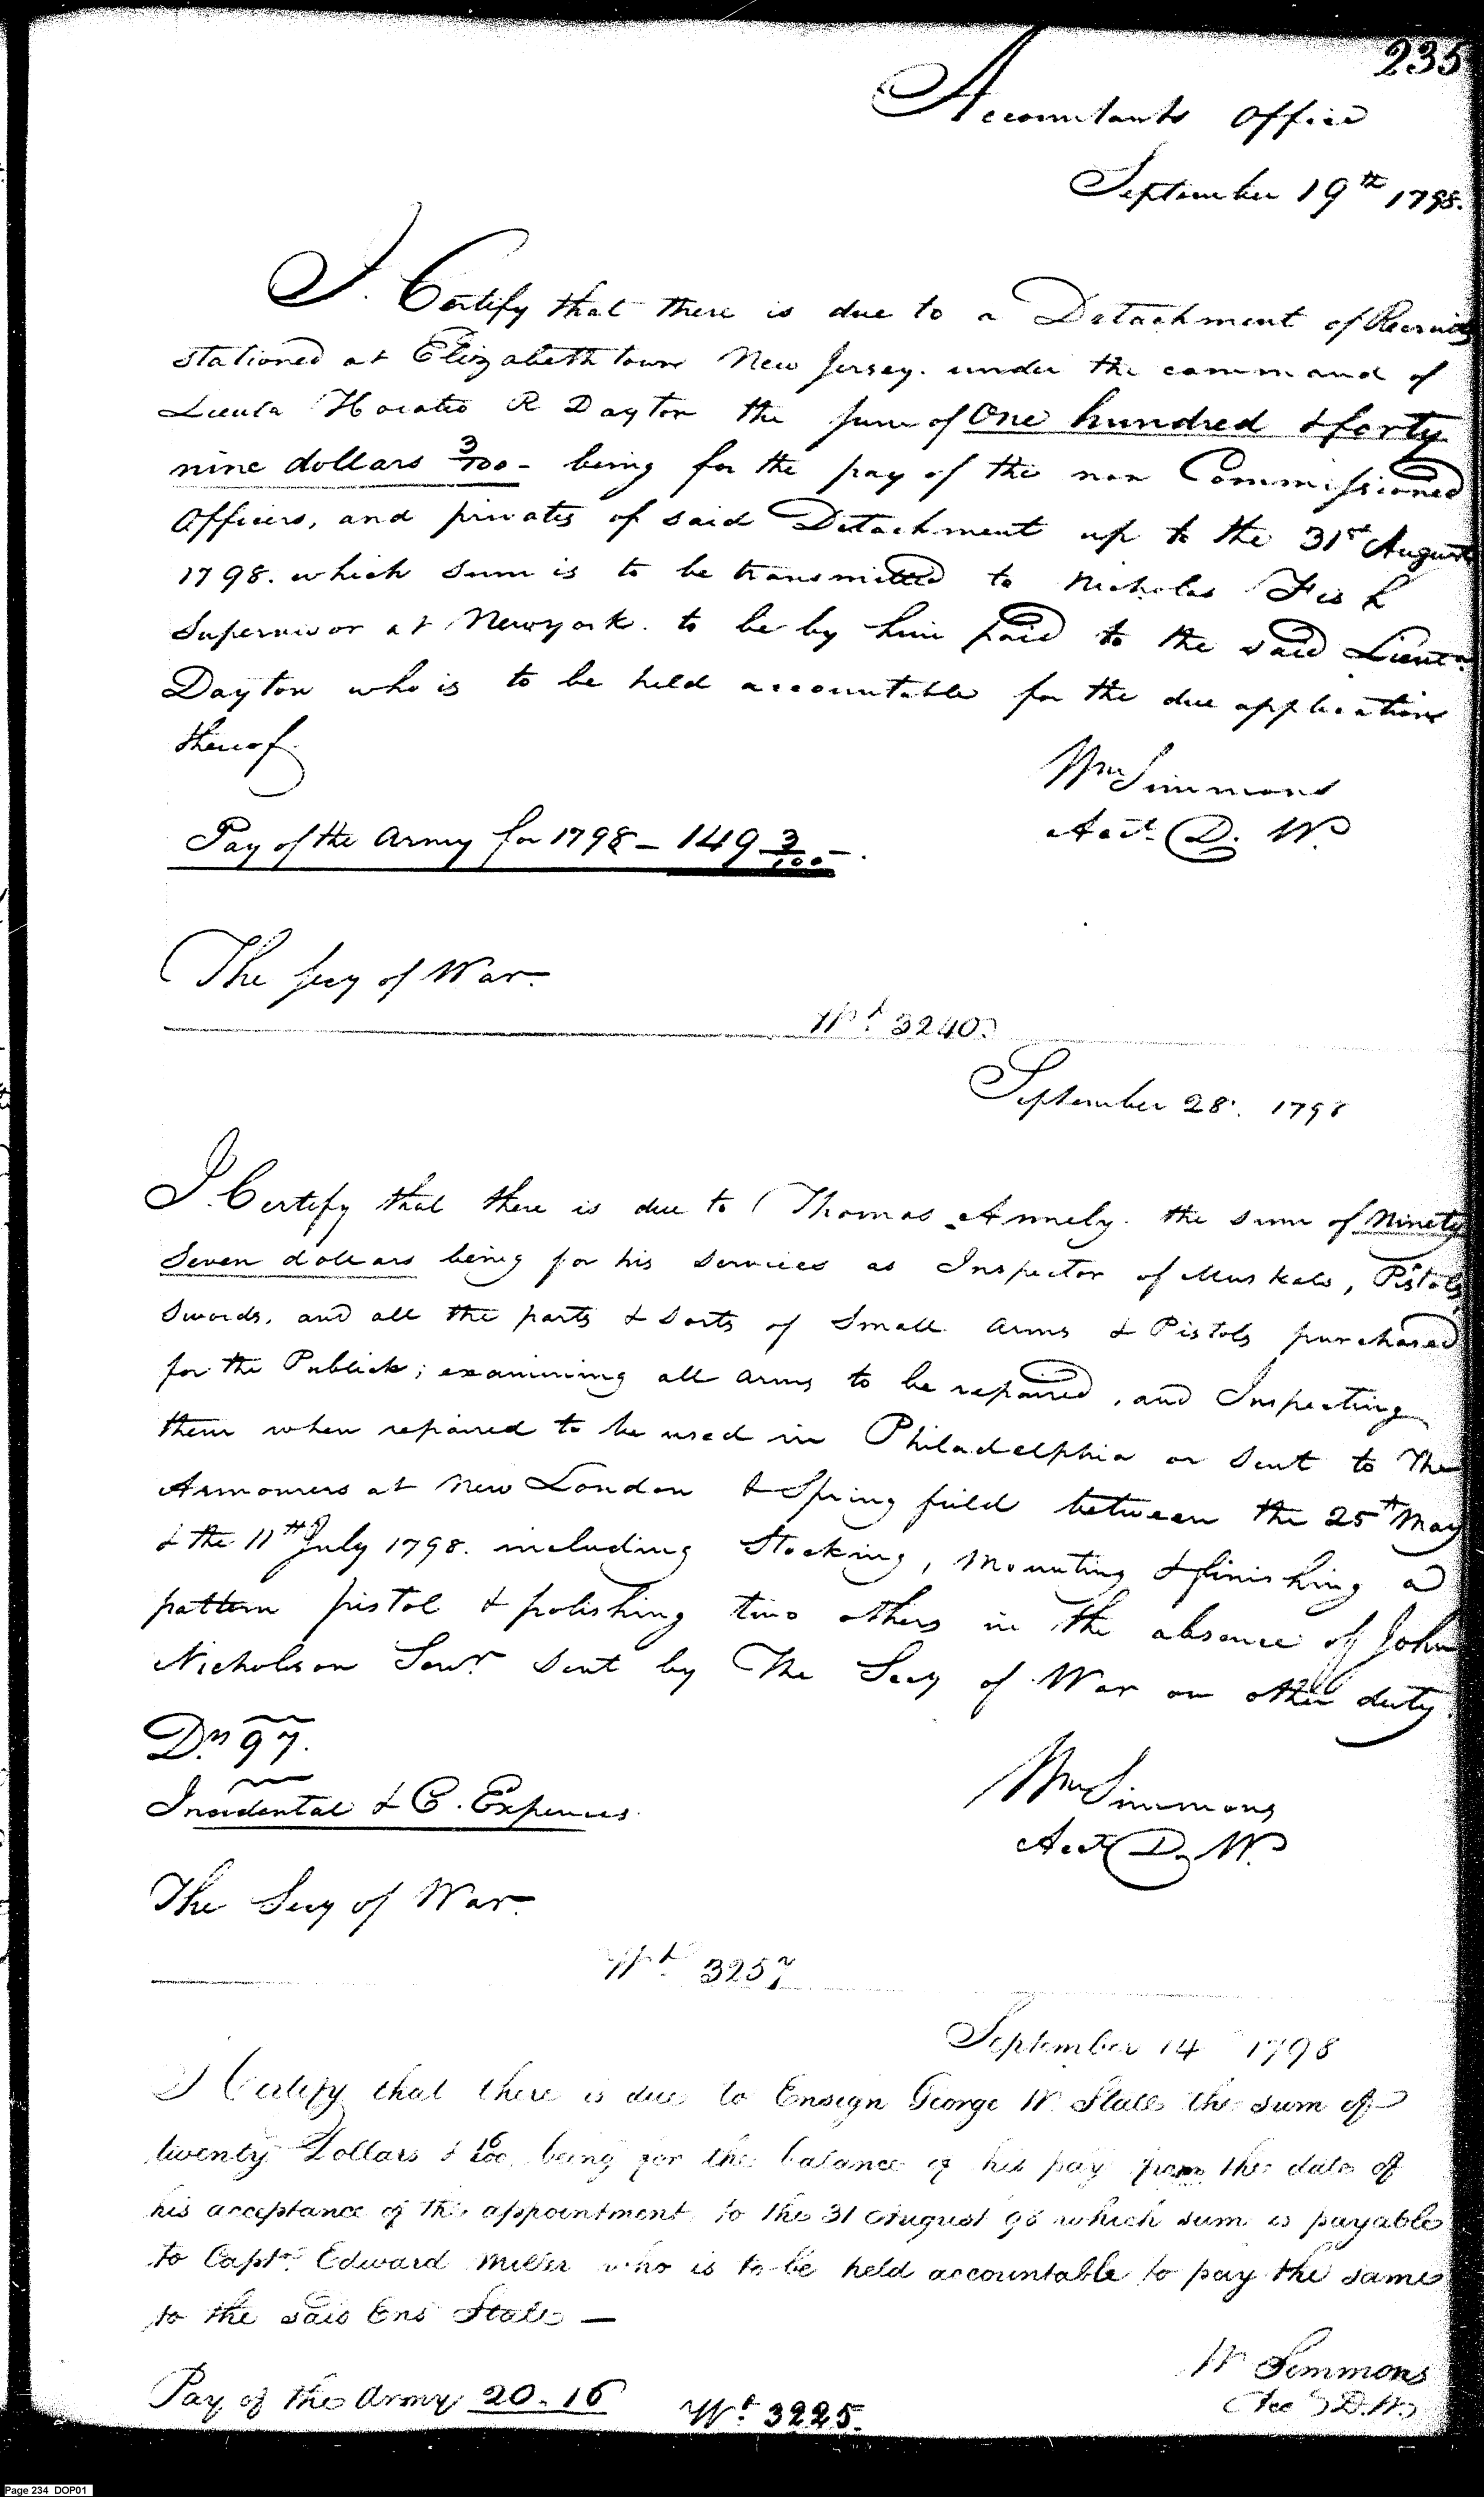 235
Accountants Office
September 19th 1798.
I. Certify that there is due to a Detachment of Recruits
stationed at Elizabeth town New Jersey. under the command of
Lieuta Horatio R Dayton the sum of One hundred & forty
nine dollars 3/100 - being for the pay of the non Commissioned
Officers, and privates of said Detachment up to the 31st August
1798. which sum is to be transmitted to Nicholas Fish
Supervisor at Newyork. to be by him paid to the said Lieut.
Dayton who is to be held accountable for the due application
thereof.
Wm Simmons
Acct. D. W.
Pay of the Army for 1798 - 149 3/100 -.
The Secy of War.
Wt. 3240.
September 28. 1798
I. Certify that there is due to Thomas Annely. the sum of Ninety
Seven dollars being for his services as Inspector of Muskets, Pistols,
Swords, and all the parts & sorts of Small arms & Pistols purchased
for the Publick; examining all arms to be repaired, and Inspecting
them when repaired to be used in Philadelphia or sent to The
Armourers at New London & Spring field between the 25th May
& the 11th July 1798. including Stocking, Mounting & finishing a
pattern pistol & polishing two others in the absence of John
Nicholson Senr. sent by The Secy of War on other duty.
Drs 97.
Wm Simmons
Incidental & C. Expences.
Acct D. W.
The Secy of War.
Wt. 3257
September 14 1798
I Certify that there is due to Ensign George W. Stall the sum of
twenty Dollars & 16/100 being for the balance of his pay from the date of
his acceptance of the appointment to the 31 August 98 which sum is payable
to Captn. Edward Miller who is to be held accountable to pay the same
to the said Ens Stall —
W Simmons
Pay of the Army 20.16
Acc D.W.
Wt. 3225.
Page 234 DOP01